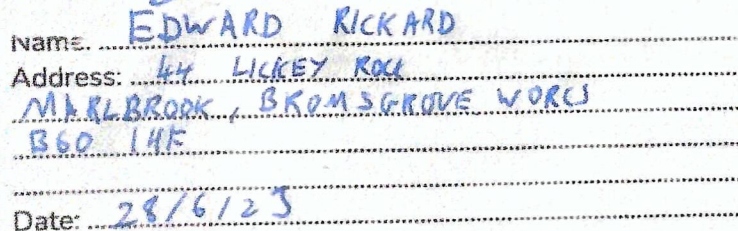 Name. EDWARD RICKARD
Address: 44 LICKEY ROCK
MARLBROOK, BROMSGROVE WORCS
B60 1HF
Date: 28/6/23